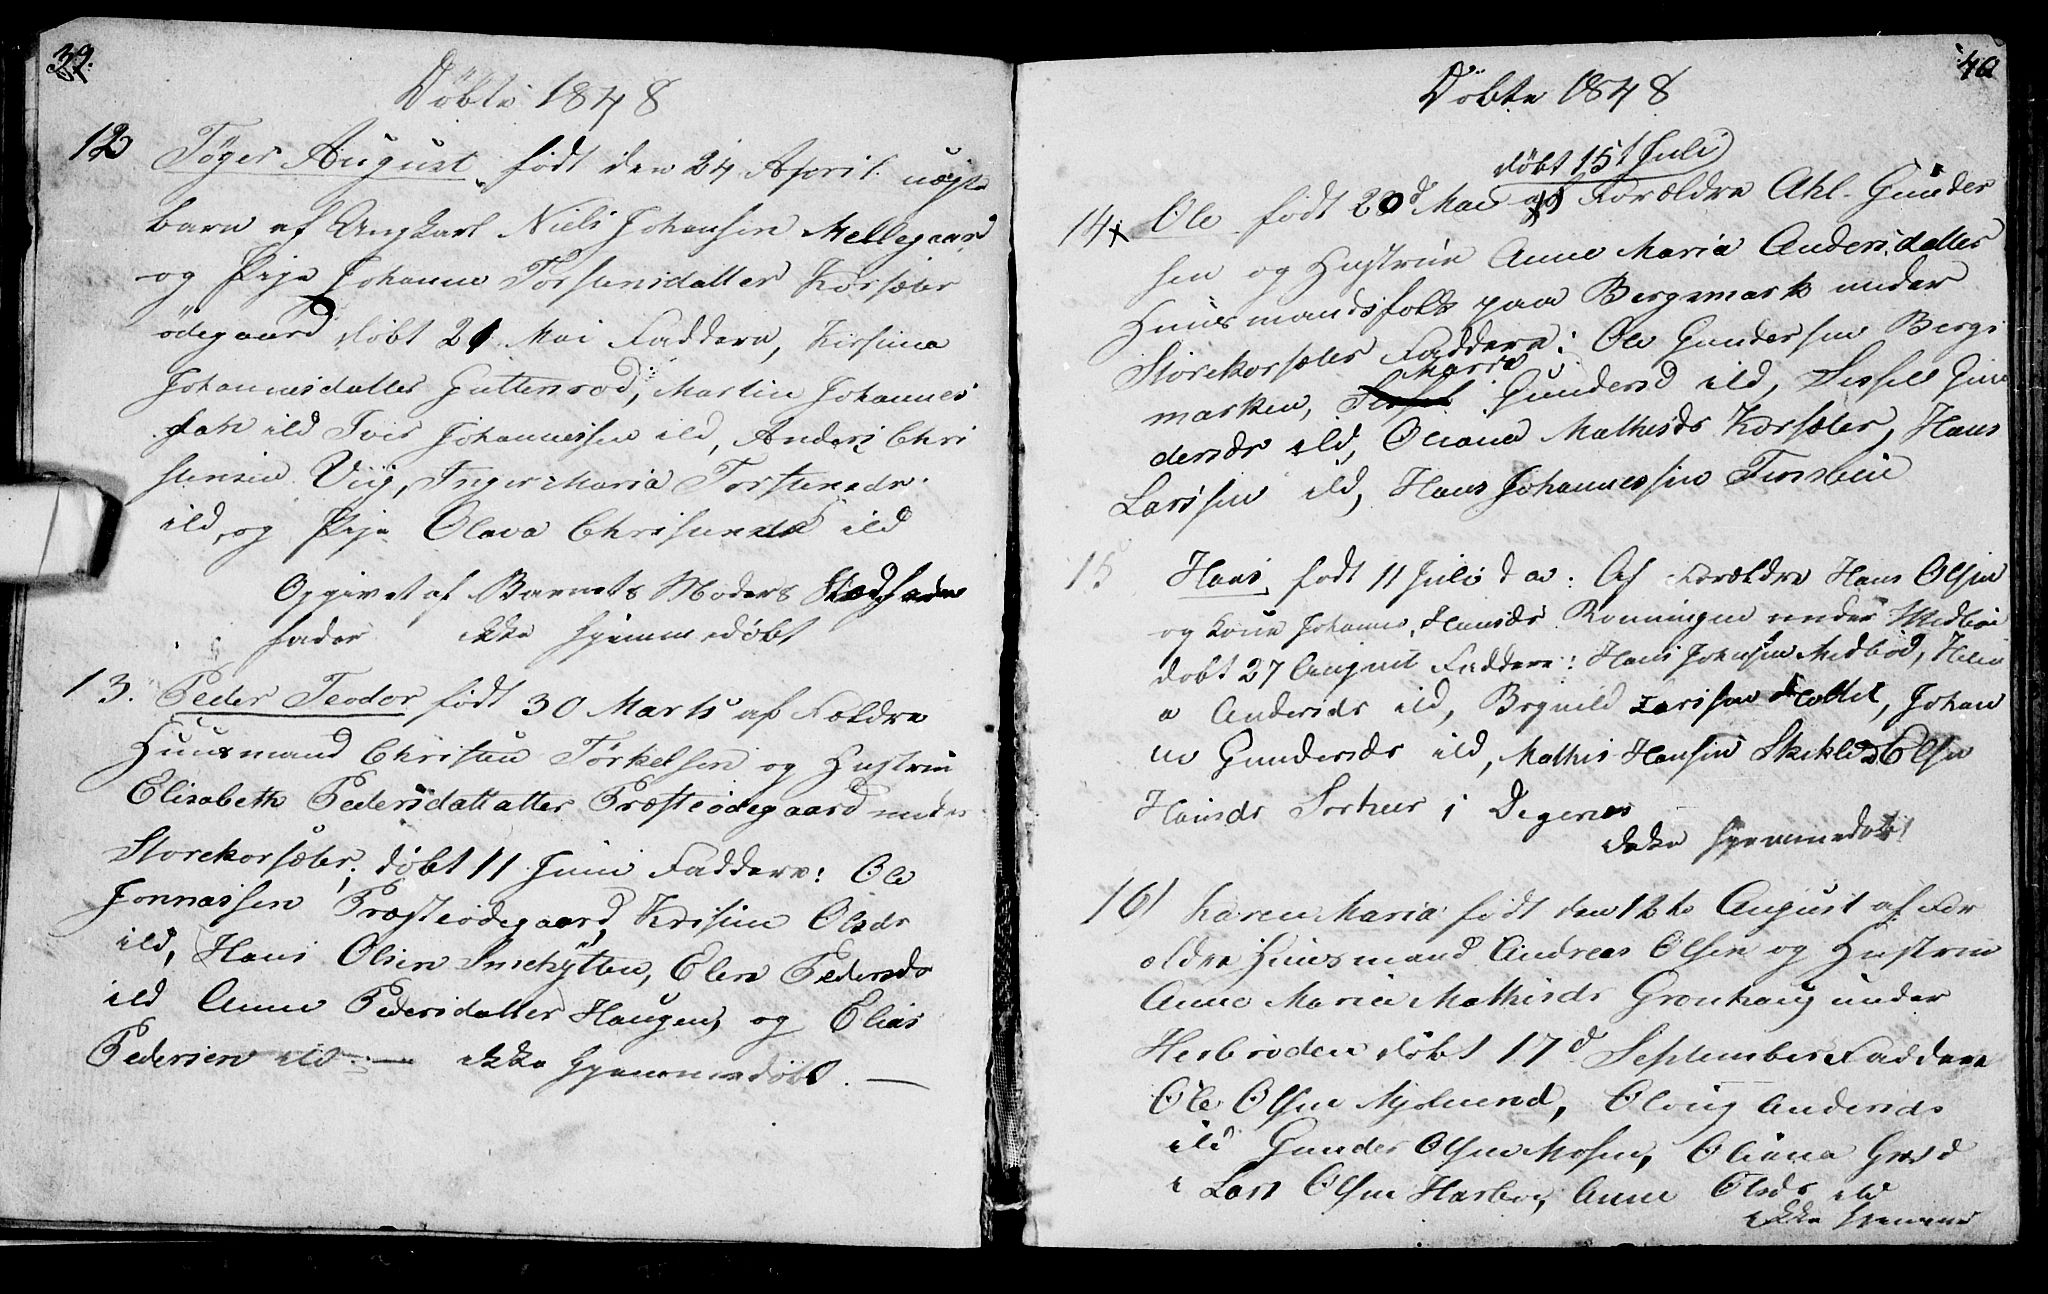 39.
Döbte 1848
12 Töger August födt den 24 April. uægte
barn af Ungkarl Niels Johansen Mellegaard
og Pige Johanne Torstensdatter Korsæter
ödegaard döbt 21 Mai Faddere, Kirstina
Johannesdatter Guttersröd, Martin Johannes
sen ild Iver Johannessen ild, Anders Chri
stensen Viig, Inger Maria Torstensdr.
ild, og Pige Olava Christensd ild
Opgivet af Barnets Moders Stedfader
fader ikke hjemmedöbt
13. Peder Teodor födt 30 Marts af Foeldre
Huusmand Christen Törkelsen og Hustrue
Elisabeth Pedersdattatter Præsteödegaard under
Storekorsæter, döbt 11 Juni Faddere: Ole
Jonnassen Præsteödegaard, Kristine Olsdr
ild, Hans Olsen Snekÿtten, Elen Pedersdr
ild Anne Pedersdatter Haugen, og Elias
Pedersen ild. — ikke hjemmedöbt. —
40
Döbte 1848
döbt 15t Juli
14 x Ole födt 20d Mai af Forældre Ahl. Gunder
sen og Hustrue Anne Maria Andersdatter
Huusmandsfolk paa Bergsmark under
Storekorsæter Faddere: Ole Gundersen Bergs
Maria
marken, Gundersd ild, Sissel Gun
dersdr ild, Oleana Mathisdr Korsæter, Hans
Larssen ild, Hans Johannessen
15 Hans, födt 11 Juli d a: Af Forældre Hans Olsen
og kone Johanne Hansdr Rønningen under
dobt 27 August Faddere: Hans Johnsen Medböe, Helen
a Andersdr ild, Brynild Larssen Holtet, Johan
ne Gundersdr ild, Mathis Hansen Olsen
Hansdr i Degernes
ikke hjemmedöbt
16) Karen Maria födt den 12te August af For
oldre Huusmand Andreas Olsen og Hustrue
Anne Marie Mathisdr Grønhaug under
Herbröden döbt 17d September Faddere
Ole Olsen Nÿlund, Oloug Andersdr
ild Gunder Olsen Mosen, Oliana
Lars Olsen Harboe, Anne Olsdr ild
ikke hjemme